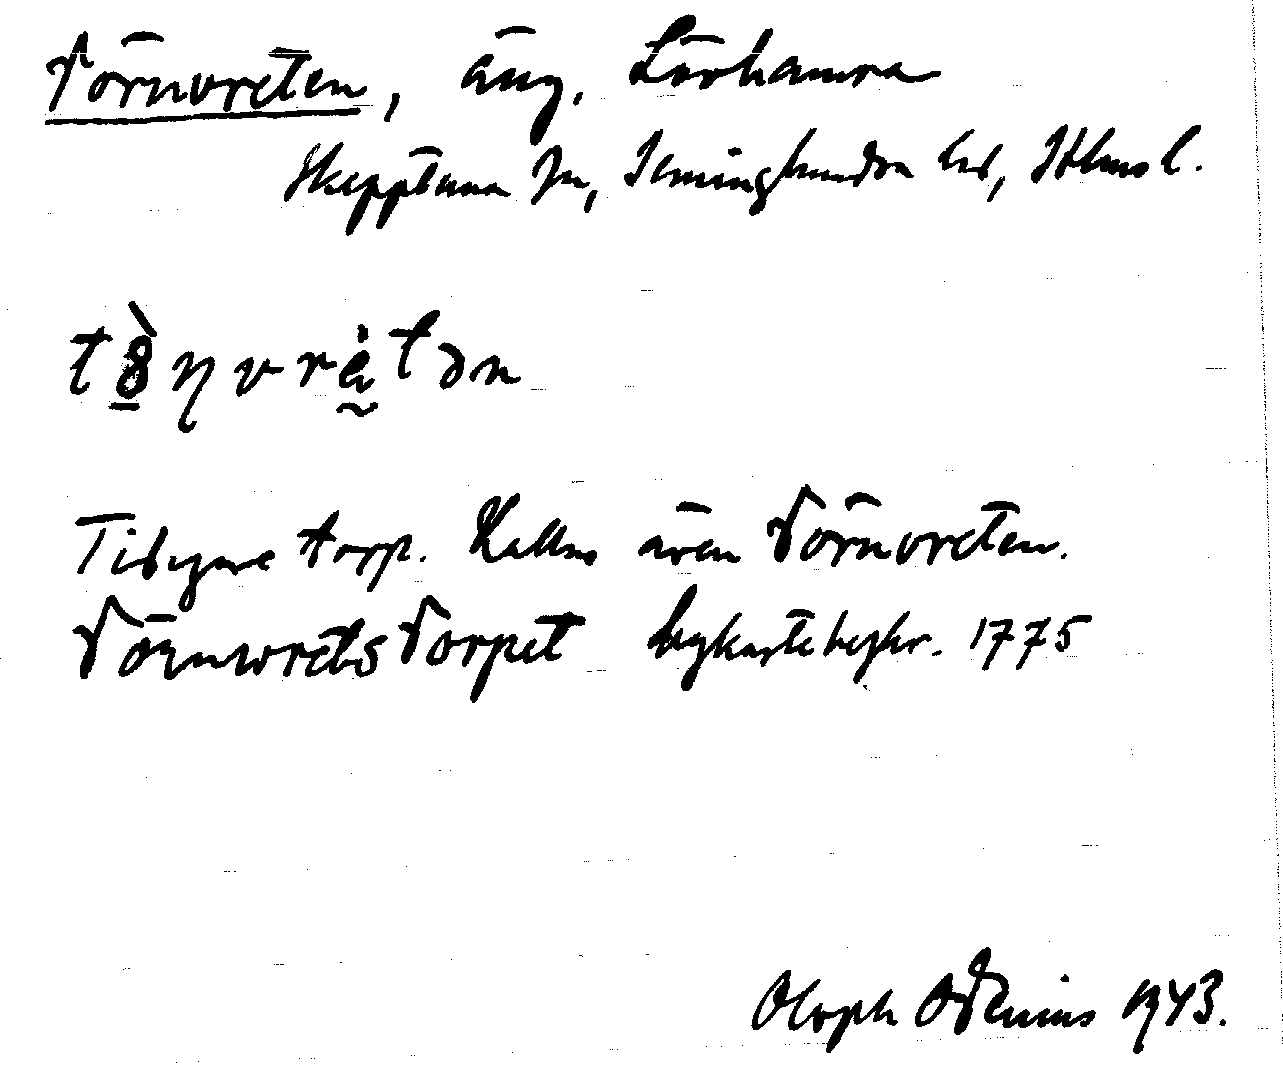 Törnvreten, äng, Lövhamra
Skepptuna sn, Seminghundra hd, Sthms l.
tö̀ŋvrètən
Tidigare torp. Kallas även Törnvreten.
Törnwrets Torpet bykartebeskr. 1775
Oloph Odenius 1943.